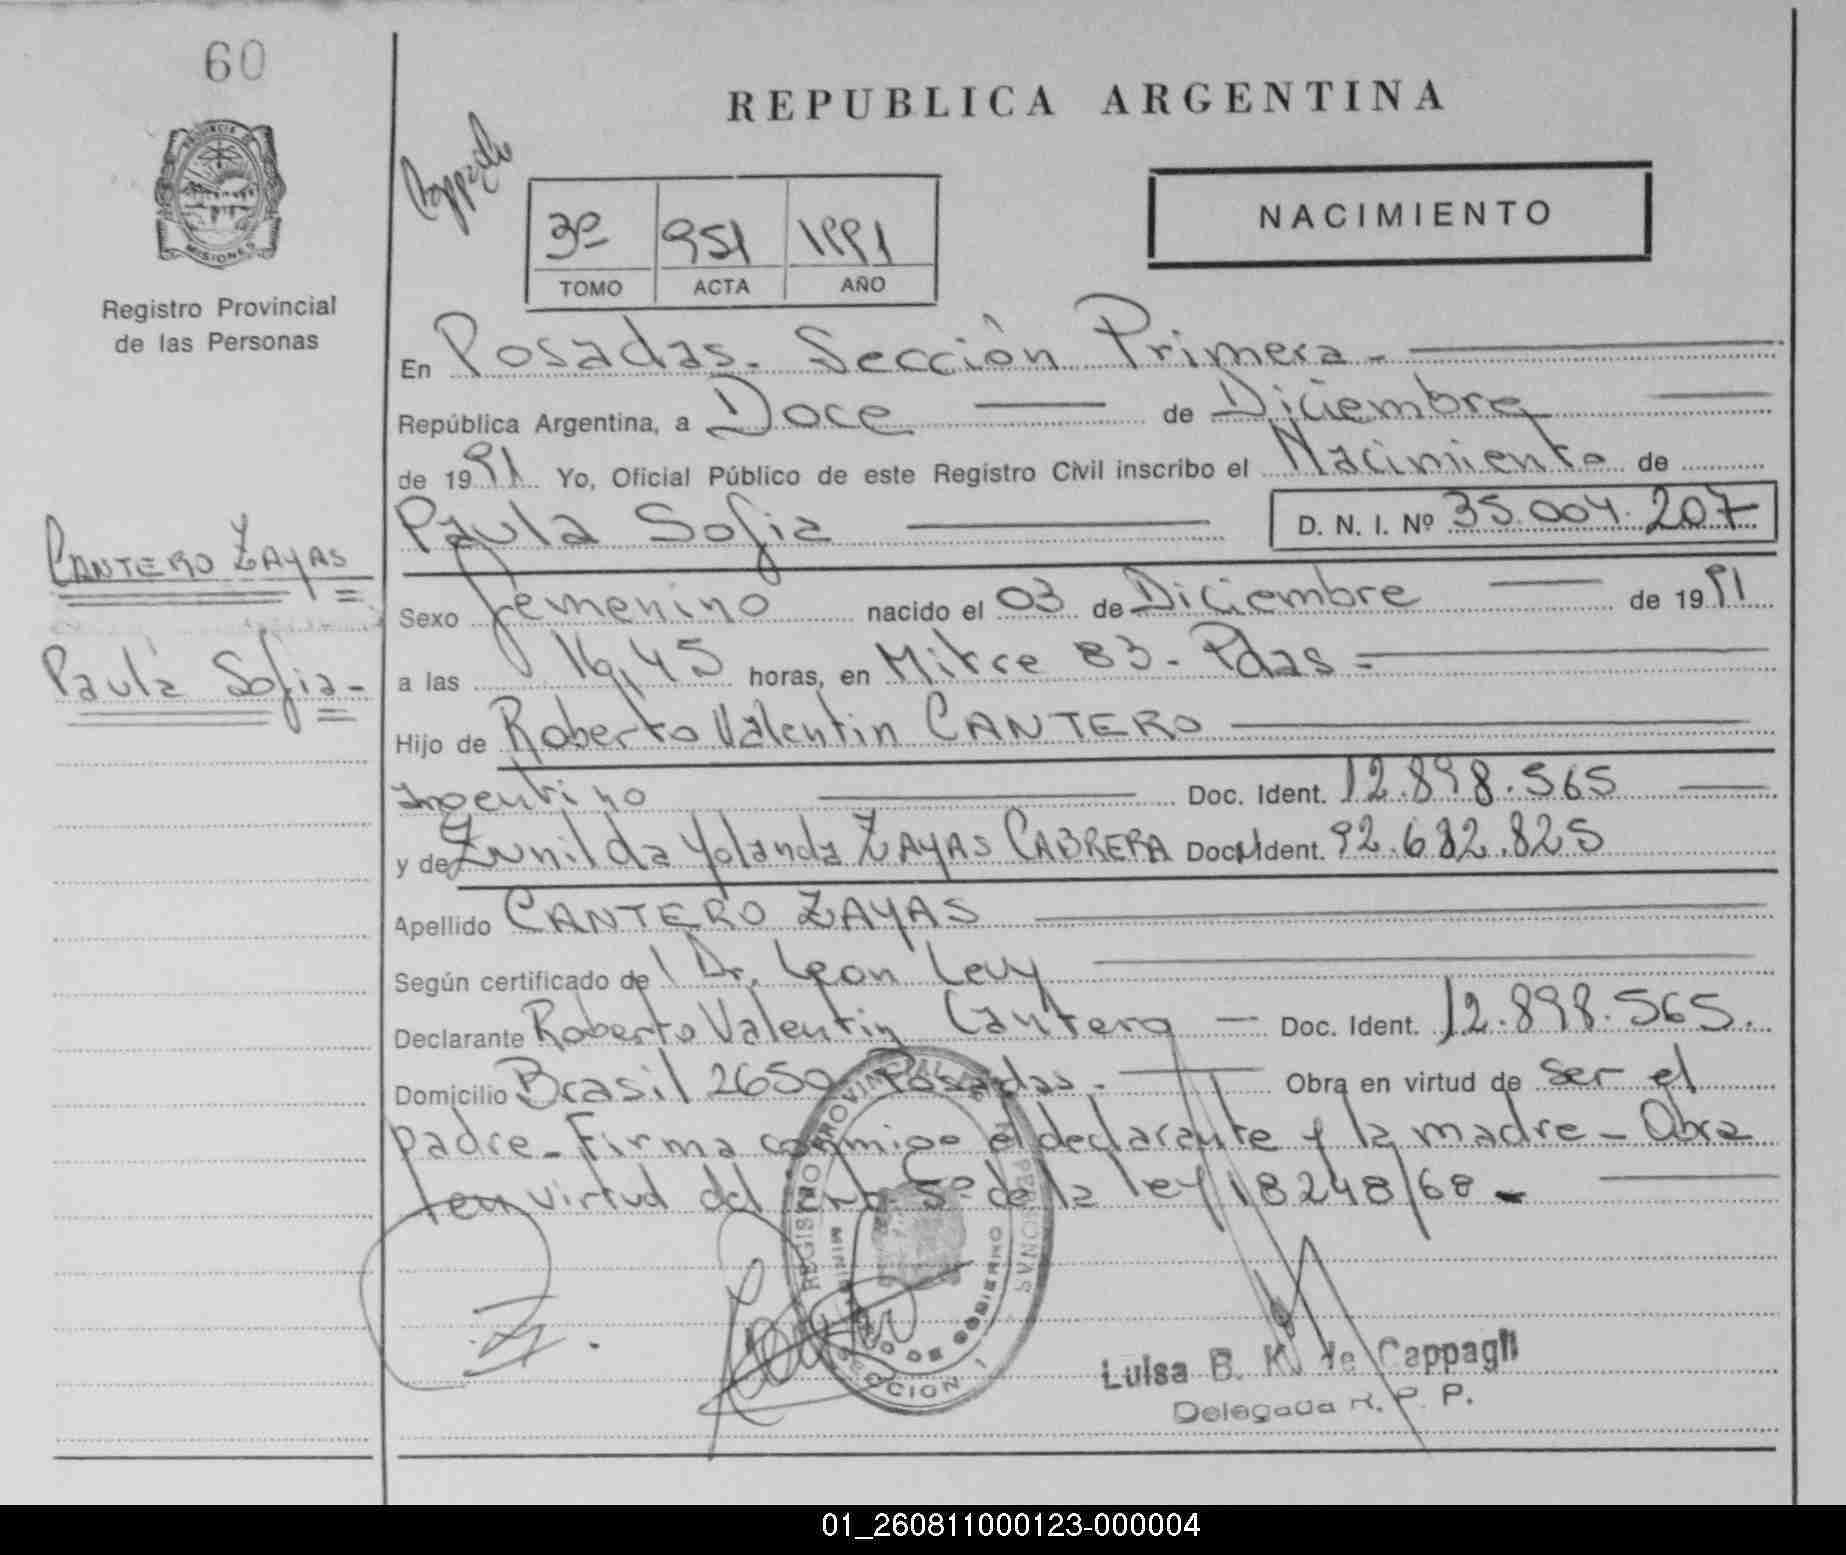 60
REPUBLICA ARGENTINA
PROVINCIA DE
MISIONES
Registro Provincial
de las Personas
3º 951 1991
TOMO ACTA AÑO
NACIMIENTO
En Posadas. Sección Primera -
República Argentina, a Doce de Diciembre
de 1991 Yo, Oficial Público de este Registro Civil inscribo el Nacimiento de
Paula Sofia D. N. I. Nº 35.004.207
CANTERO ZAYAS
Paula Sofia -
Sexo femenino nacido el 03 de Diciembre de 1991
a las 16,45 horas, en Mitre 83 - Pdas -
Hijo de Roberto Valentin CANTERO
Argentino Doc. Ident. 12.898.565
y de Zunilda Yolanda ZAYAS CABRERA Doc. Ident. 92.682.825
Apellido CANTERO ZAYAS
Según certificado de Dr. Leon Levy
Declarante Roberto Valentin Cantero - Doc. Ident. 12.898.565.
Domicilio Brasil 2650 Posadas - Obra en virtud de ser el
padre - Firma conmigo el declarante y la madre - Obra
en virtud del art. 5º de la ley 18248/68 -
REGISTRO PROVINCIAL DE LAS PERSONAS
MINISTERIO DE GOBIERNO
SECCION 1
Luisa B. K. de Cappagli
Delegada R. P. P.
01_260811000123-000004